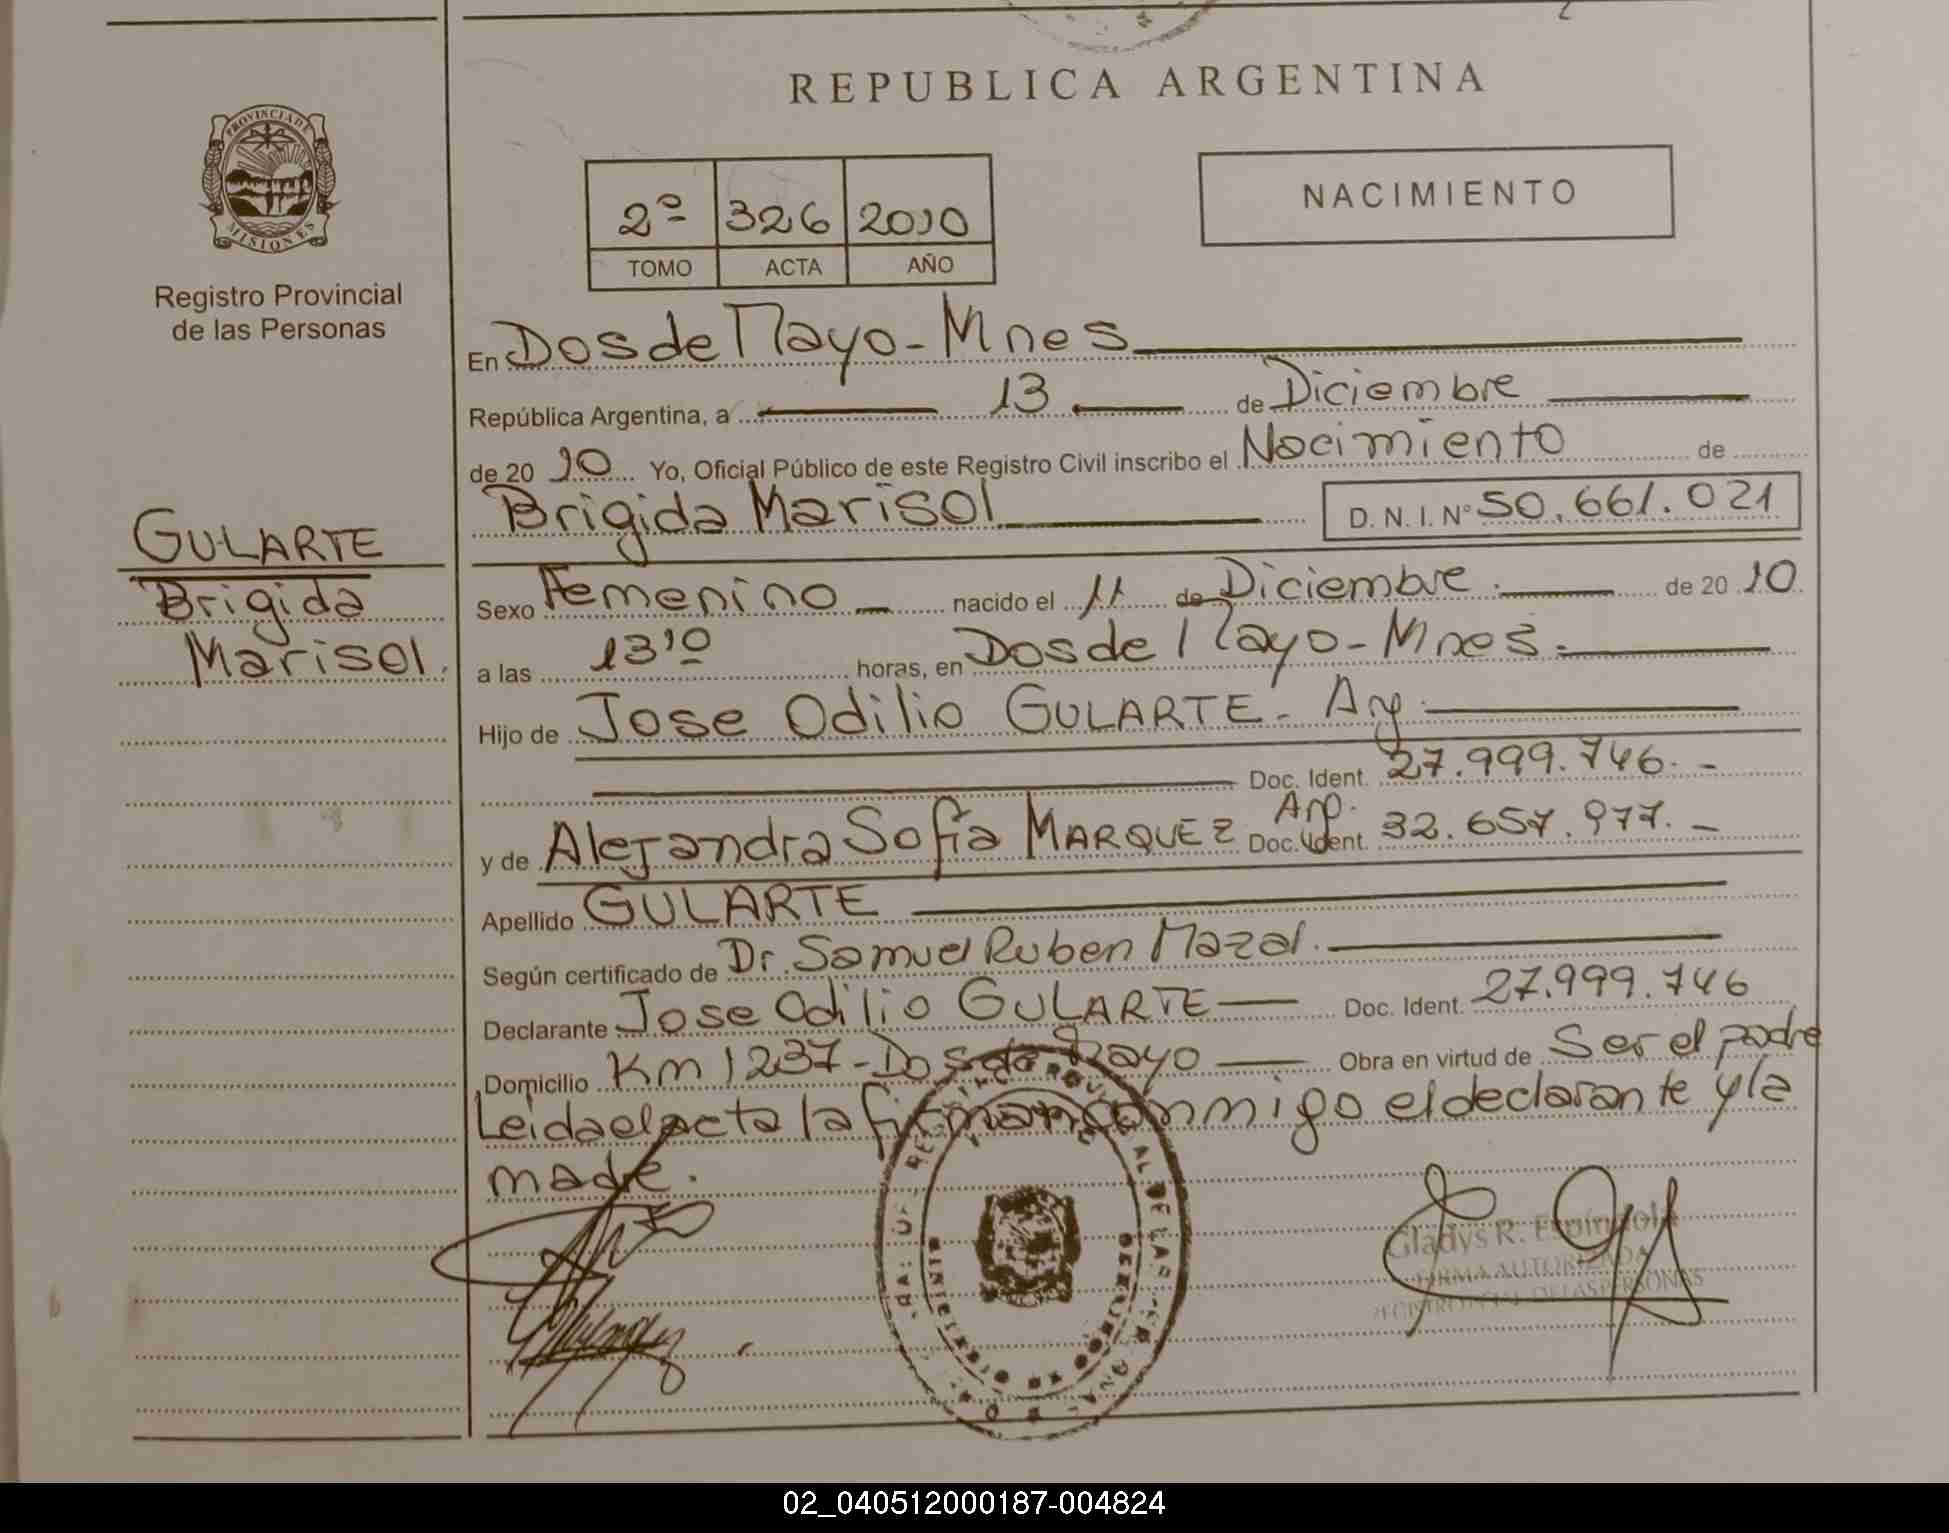 REPUBLICA ARGENTINA
PROVINCIA DE
MISIONES
Registro Provincial
de las Personas
2º 326 2010
TOMO ACTA AÑO
NACIMIENTO
En Dos de Mayo - Mnes
República Argentina, a 13 de Diciembre
de 20 10 Yo, Oficial Público de este Registro Civil inscribo el Nacimiento de
Brigida Marisol D. N. I. Nº 50.661.021
GULARTE
Brigida
Marisol.
Sexo Femenino nacido el 11 de Diciembre. de 20 10
a las 13,10 horas, en Dos de Mayo - Mnes.
Hijo de Jose Odilio GULARTE - Arg.
Doc. Ident. 27.999.746.-
y de Alejandra Sofia MARQUEZ Arg. Doc. Ident. 32.657.977.-
Apellido GULARTE
Según certificado de Dr. Samuel Ruben Mazal.
Declarante Jose Odilio GULARTE Doc. Ident. 27.999.746
Domicilio Km 1237 - Dos de Mayo Obra en virtud de Ser el padre
Leida el acta la firman conmigo el declarante y la
madre.
Gladys R. Espíndola
FIRMA AUTORIZADA
REGISTRO PCIAL. DE LAS PERSONAS
02_040512000187-004824